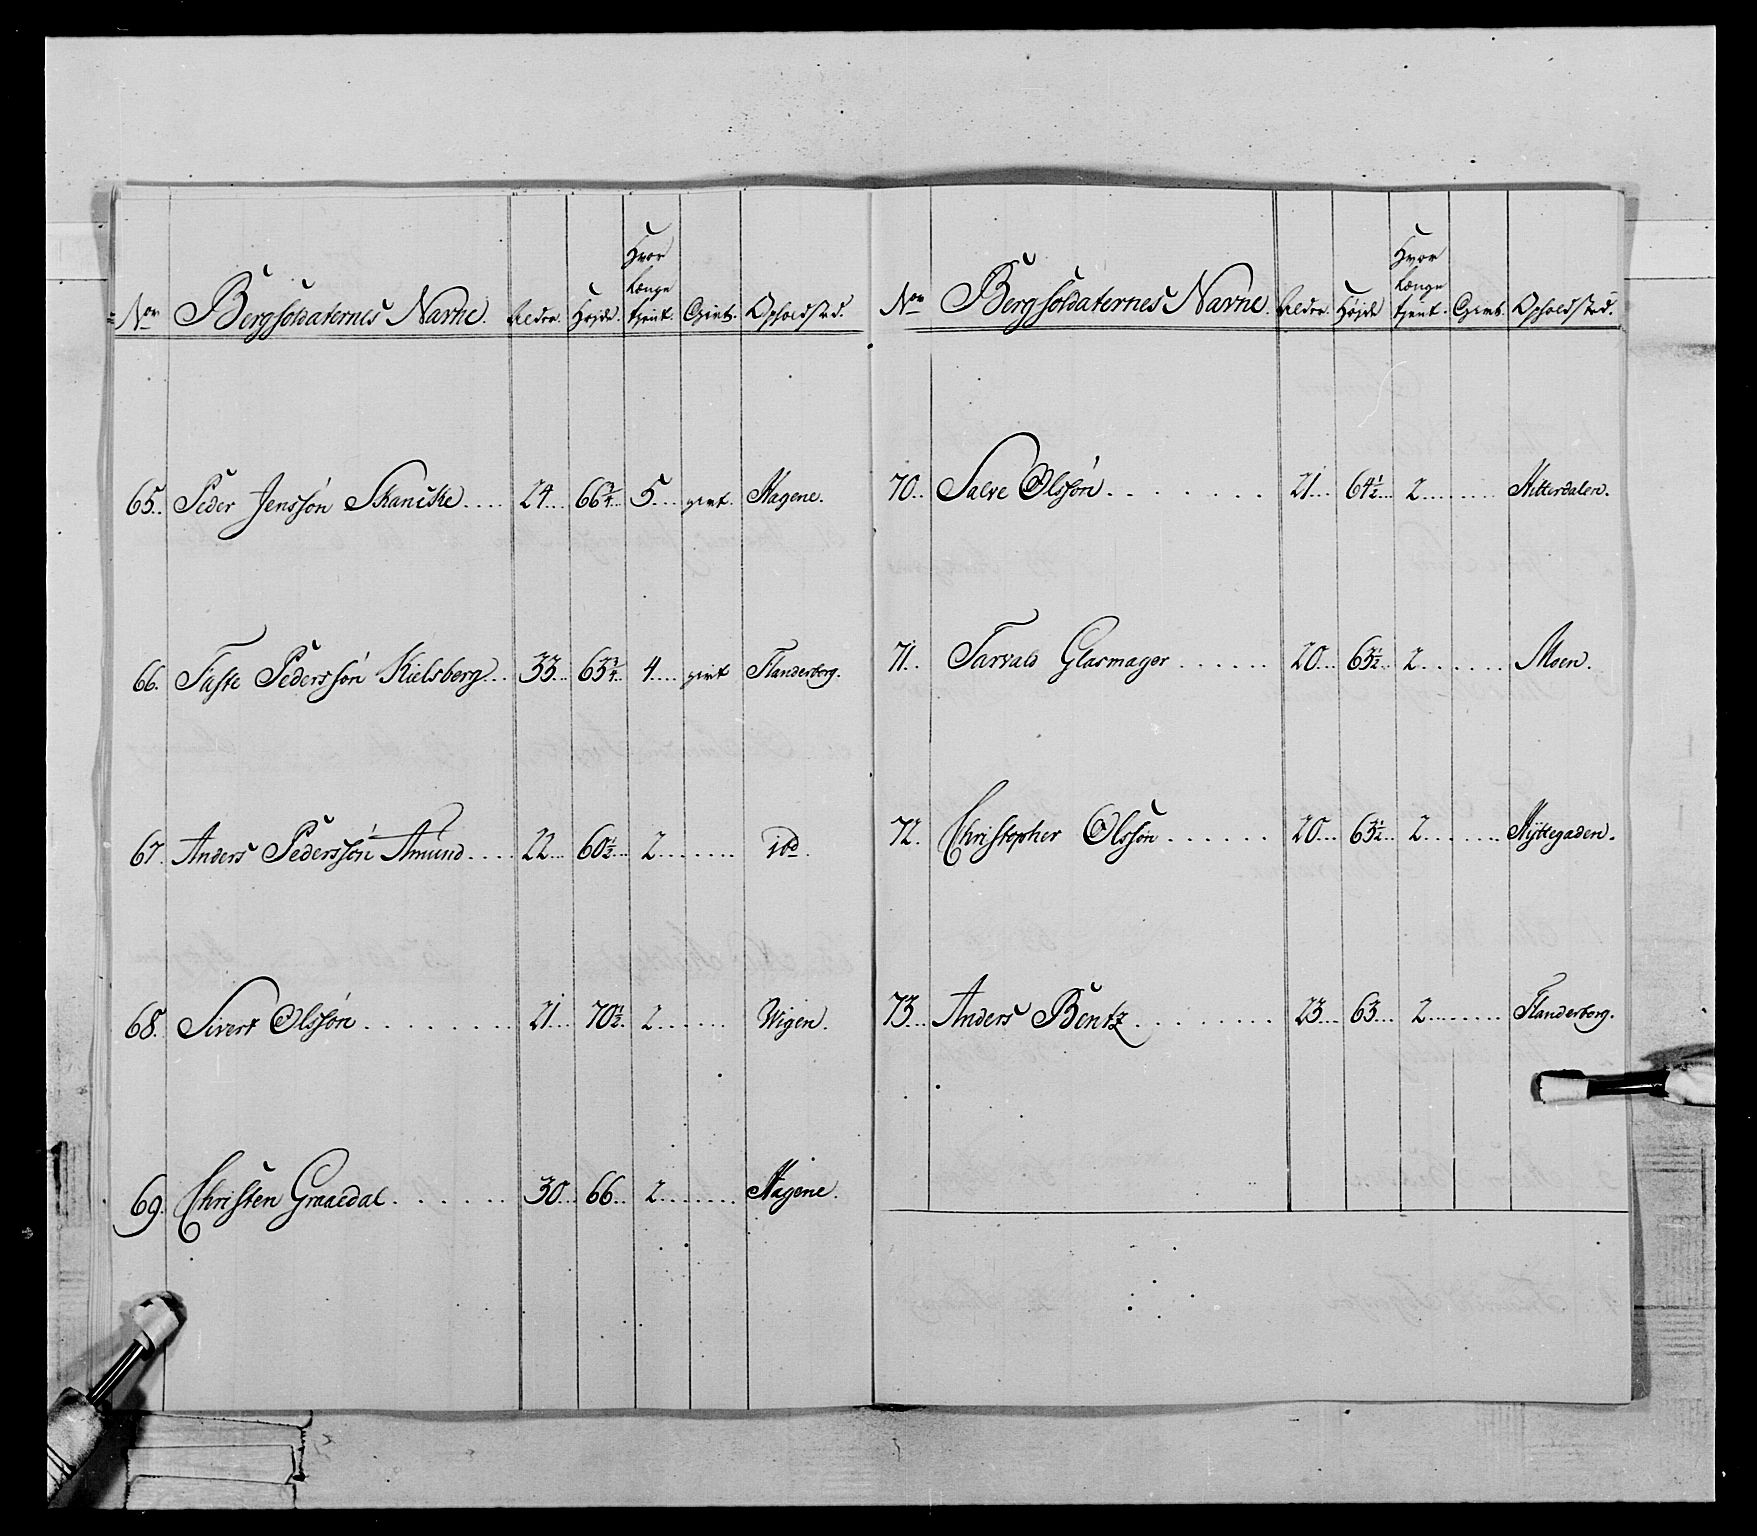 Nor Bergsoldaternes Navne. Alder. Højde. Hvor længe tjent. Givt. Opholdsted.
65. Peder Jenssøn Skanckke 24 66 3/4 5 givt. Hagene.
66. Faste Pederssøn Kielsberg 33 63 3/4 4 givt Flanderborg.
67. Anders Pederssøn Amund 22 60 1/2 2 ibd.
68. Sivert Olssøn 21 70 1/2 2 Wigen.
69. Christen Graaedal 30 66 2 Hagene.
Nor Bergsoldaternes Navne. Alder. Højde Hvor længe tjent. Givt. Opholdsted.
70. Salve Olssøn 21 64 1/2 2 Hitterdalen.
71. Tarvald Glasmager 20 63 1/2 2 Moen.
72. Christopher Olssøn 20 63 1/2 2 Hyttegaden.
73. Anders Bentz 23 63 2 Flanderborg.